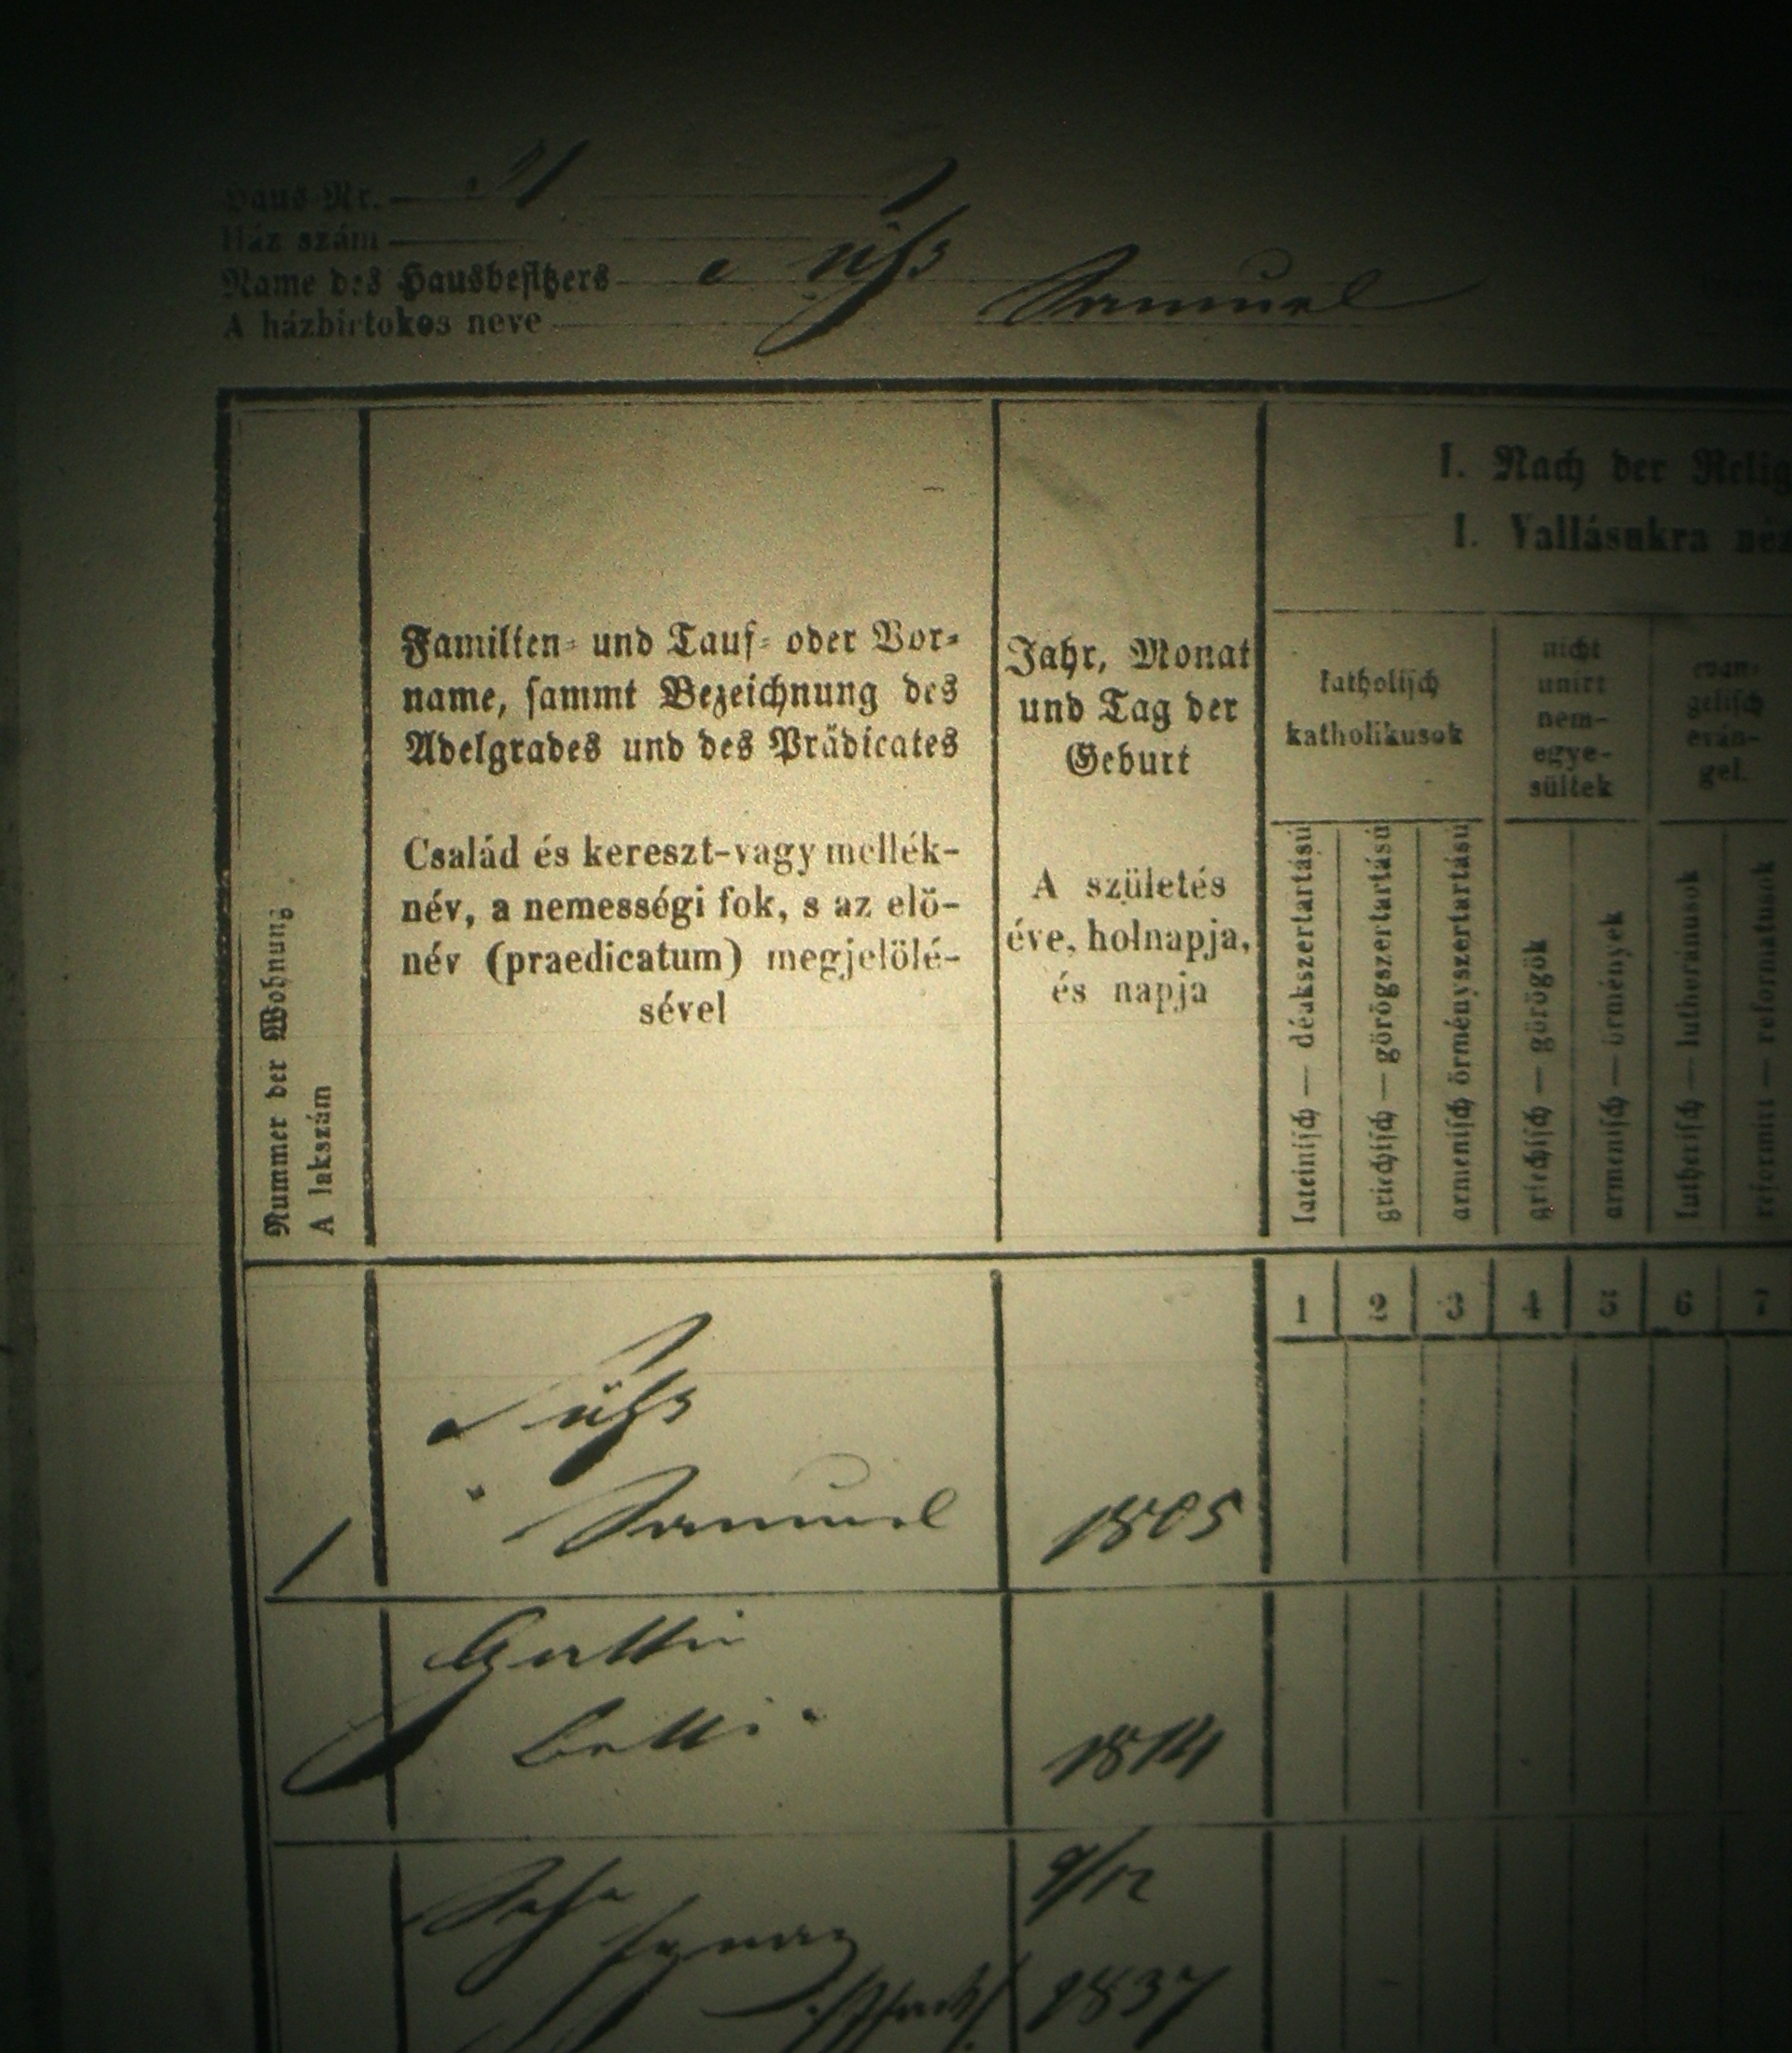 Haus-Nr.
Ház szám
Name des Hausbesitzers Süss Samuel
A házbirtokos neve
Nummer der Wohnung
A lakszám
Familien- und Tauf- oder Vor-
name, sammt Bezeichnung des
Adelgrades und des Prädicates
Család és kereszt-vagy mellék-
név, a nemességi fok, s az elő-
név (praedicatum) megjelölé-
sével
Jahr, Monat
und Tag der
Geburt
A születés
éve, holnapja,
és napja
I. Nach der Relig
I. Vallásukra néz
katholisch
katholikusok
nicht
unirt
nem-
egye-
sültek
evan-
gelisch
eván-
gel.
lateinisch — déakszertartású
griechisch — görögszertartású
armenisch örményszertartású
griechisch — görögök
armenisch — örmények
lutherisch — lutheránusok
reformirt — reformatusok
1 2 3 4 5 6 7
Süss
1 Samuel 1805
Gattin
Betti 1814
Sohn 9/12
Ignaz 1837